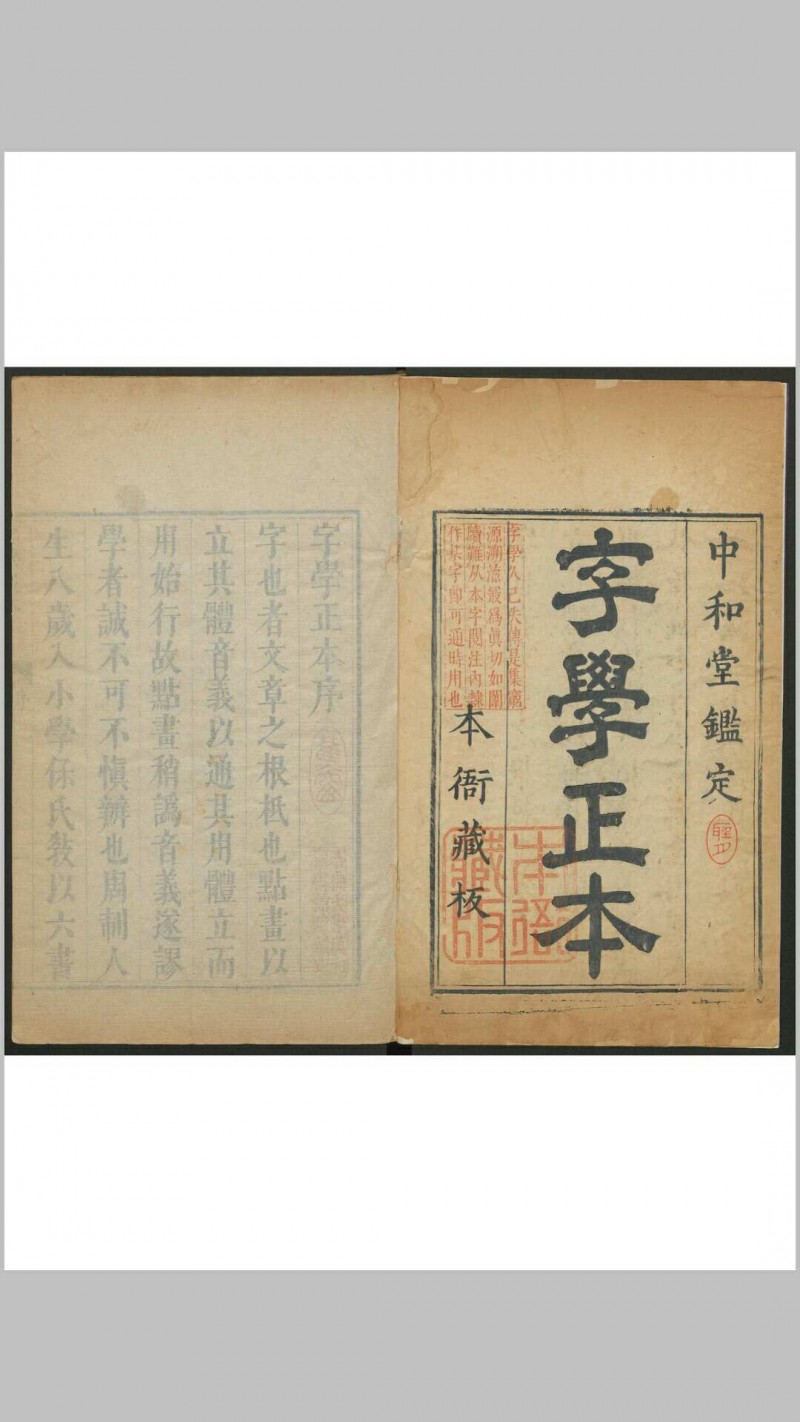 中和堂鑑定
字學正本
字學久已失傳是集窮
源溯流最爲眞切如開
牘難从本字閱注內隸
作某字即可通時用也
本衙藏板
本衙藏版
字學正本序
字也者文章之根柢也點畫以
立其體音義以通其用體立而
用始行故點畫稍譌音義遂謬
學者誠不可不愼辨也周制人
生八歲入小學保氏敎以六書